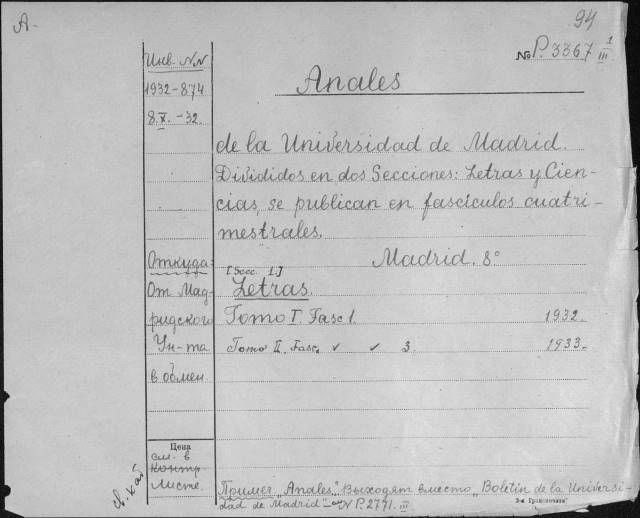 A-
94
Nо P.3367 1/III
Инв. N.N
1932-874
8.X.-32.
Anales
de la Universidad de Madrid.
Divididos en dos Secciones: Letras y Cien-
cias, se publican en fascículos cuatri-
mestrales.
Madrid. 8°
Откуда:
От Мад-
ридского
Ун-та
в обмен
[Secc. 1.]
Letras.
Tomo I. Fasc 1. 1932.
Tomo II. Fasc. ✓ ✓ 3. 1933.-
Цена
см. в
контр
листе.
Примеч „Anales” выходят вместо „Boletín de la Universi-
dad de Madrid” N P.2771. III